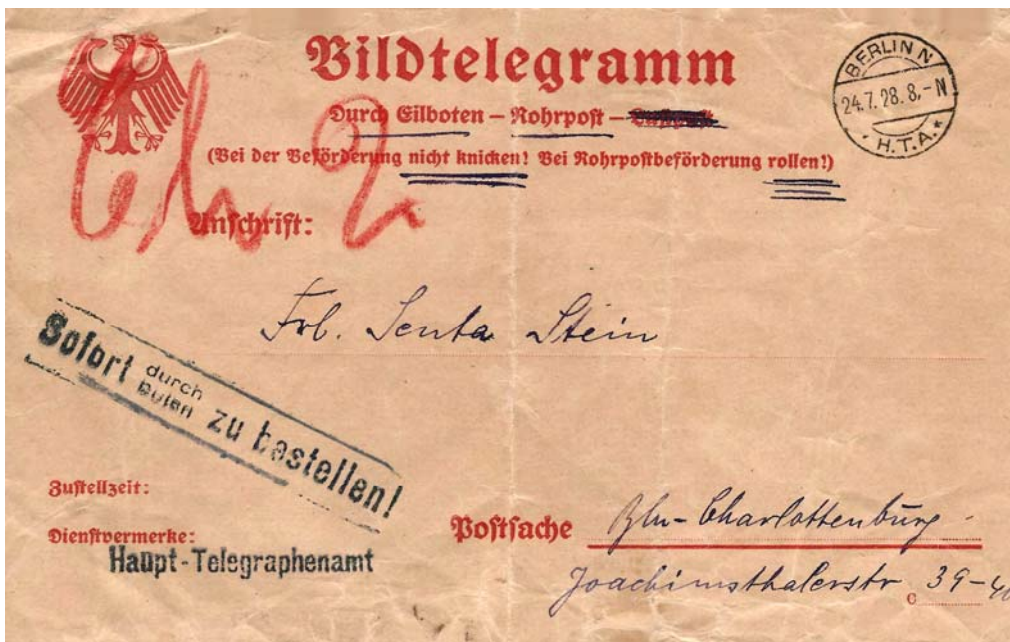 Bildtelegramm
BERLIN N
24.7.28.8.-N
* H.T.A. *
Durch Eilboten – Rohrpost –
(Bei der Beförderung nicht knicken! Bei Rohrpostbeförderung rollen!)
Anschrift:
Frl. Senta Stein
Sofort durch Boten zu bestellen!
Zustellzeit:
Dienstvermerke:
Haupt-Telegraphenamt
Postsache Bln-Charlottenburg
Joachimsthalerstr 39-40
C